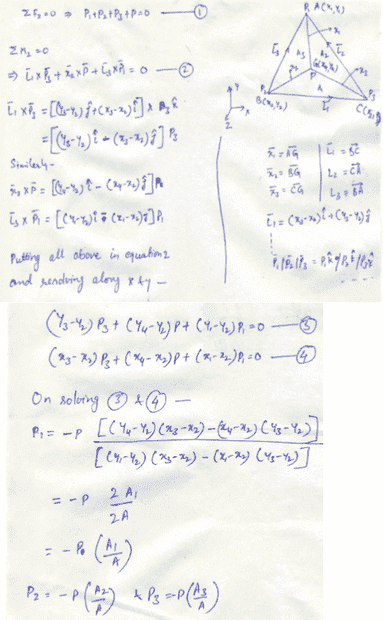 ΣF₂=0 ⇒ P₁+P₂+P₃+P=0 —— ①
ΣM₂=0
⇒ L̄₁×P̄₃ + x̄₂×P̄ + L̄₃×P̄₁ = 0 —②
L̄₁×P̄₃ = [(y₃-y₂)ĵ+(x₃-x₂)î] × P₃k̂
= [(y₃-y₂)î - (x₃-x₂)ĵ] P₃
Similarly-
x̄₂×P̄ = [(y₄-y₂)î - (x₄-x₂)ĵ]P
L̄₃×P̄₁ = [(y₁-y₂)î - (x₁-x₂)ĵ]P₁
Putting all above in equation 2
and resolving along x & y —
P₁ A(x₁,y₁)
L̄₃
x₁
L̄₂
A₃
A₂
G(x₄,y₄)
x₂
P
P₂
B(x₂,y₂)
A₁
P₃
L̄₁
y
x
Z
x̄₁ = A̅G̅ | L̄₁ = B̅C̅
x̄₂ = B̅G̅ | L₂ = C̅A̅
x̄₃ = C̅G̅ | L₃ = B̅A̅
L̄₁ = (x₃-x₂)î + (y₃-y₂)ĵ
P̄₁/P̄₂/P̄₃ = P₁k̂/P₂k̂/P₃k̂
(y₃-y₂)P₃ + (y₄-y₂)P + (y₁-y₂)P₁=0 —— ③
(x₃-x₂)P₃ + (x₄-x₂)P + (x₁-x₂)P₁=0 —— ④
On solving ③ & ④ —
P₁ = -P [(y₄-y₂)(x₃-x₂)-(x₄-x₂)(y₃-y₂)] / [(y₁-y₂)(x₃-x₂)-(x₁-x₂)(y₃-y₂)]
= -P 2A₁/2A
= -P (A₁/A)
P₂ = -P(A₂/A) & P₃=-P(A₃/A)